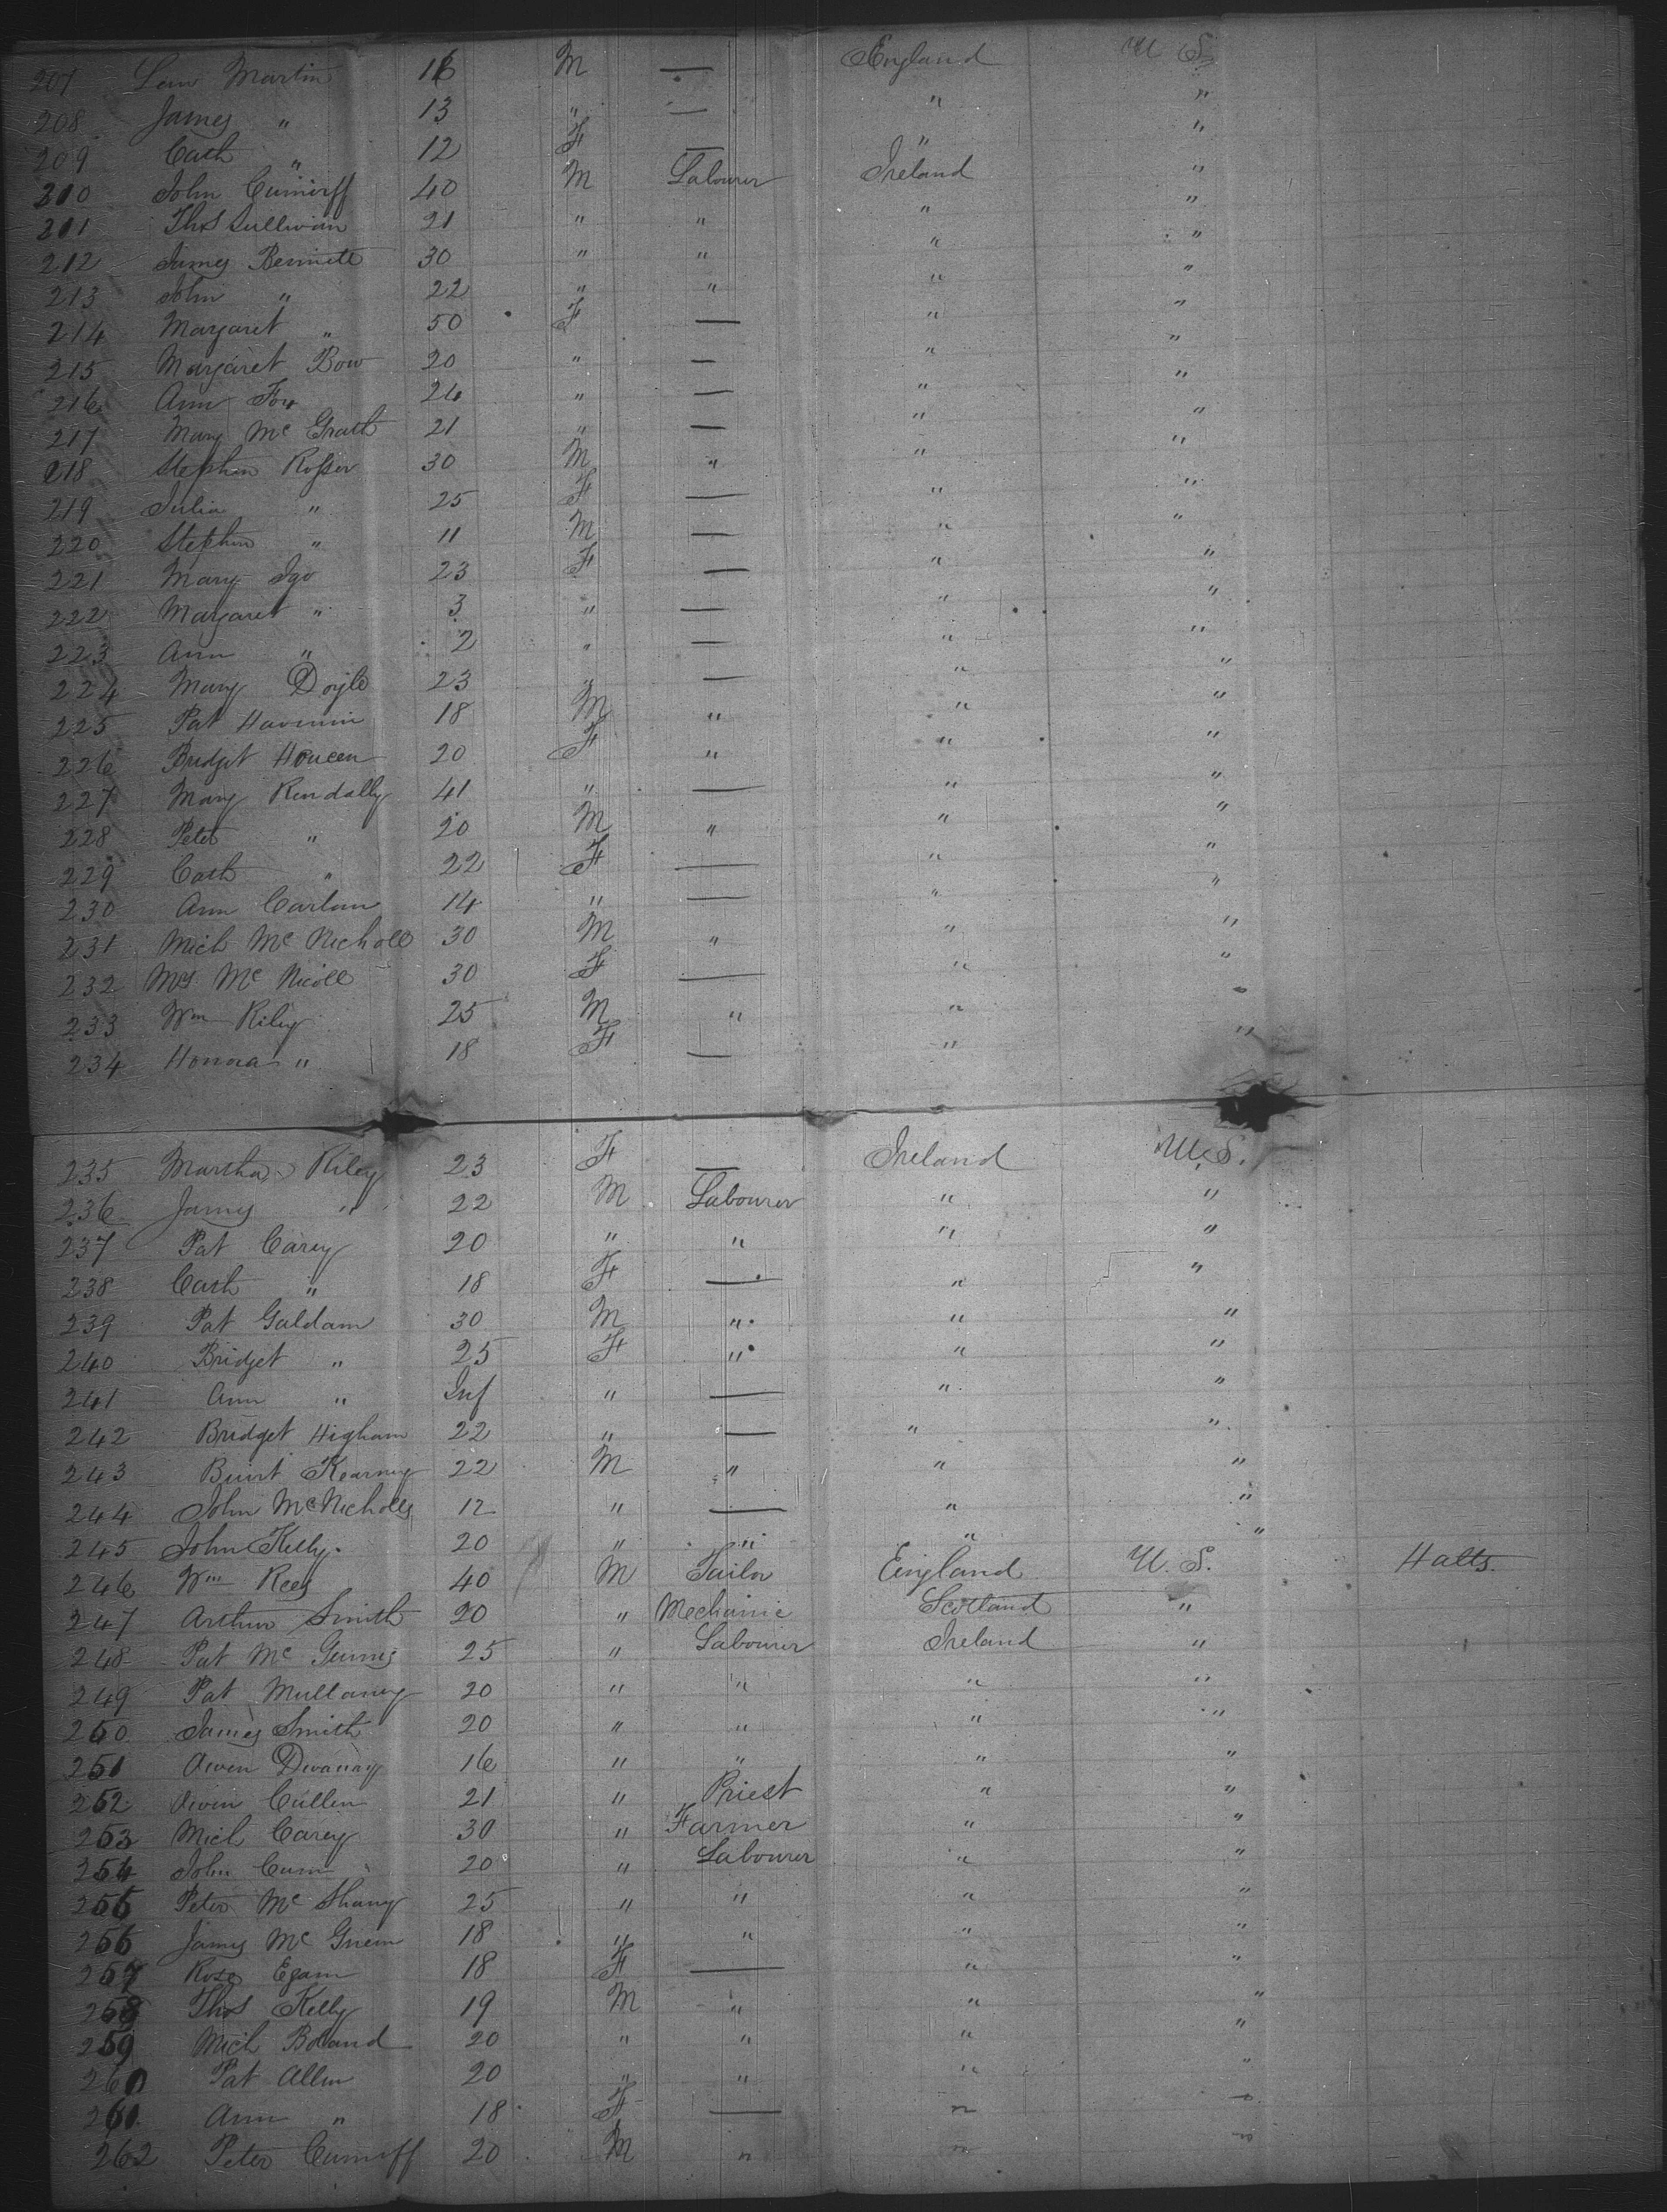 207 Law Martin 16 M — England U S.
208 James " 13 " — " "
209 Cath " 12 F — " "
210 John Cunniff 40 M Labourer Ireland "
211 Thos Sullivan 21 " " " "
212 James Bennett 30 " " " "
213 John " 22 " " " "
214 Margaret " 50 F — " "
215 Margaret Bow 20 " — " "
216 Ann Fox 24 " — " "
217 Mary Mc Grath 21 " — " "
218 Stephen Rosser 30 M " " "
219 Julia " 25 F — " "
220 Stephen " 11 M — " "
221 Mary Igo 23 F — " "
222 Margaret " 3 " — " "
223 Ann " 2 " — " "
224 Mary Doyle 23 " — " "
225 Pat 18 M " " "
226 Bridget 20 F " " "
227 Mary Kendally 41 " — " "
228 Peter " 20 M " " "
229 Cath " 22 F — " "
230 Ann Carlan 14 " — " "
231 Mich Mc Nicholl 30 M " " "
232 Mrs Mc Nicoll 30 F — " "
233 Wm Riley 25 M " " "
234 Honora " 18 F — " "
235 Martha Riley 23 F — Ireland U.S.
236 James " 22 M Labourer " "
237 Pat Carey 20 " " " "
238 Cath " 18 F — " "
239 Pat Galdam 30 M " " "
240 Bridget " 25 F " " "
241 Ann " Inf " — " "
242 Bridget Higham 22 " — " "
243 Kearney 22 M " " "
244 John McNicholls 12 " — " "
245 John Kelly. 20 " " " "
246 Wm Rees 40 M Tailor England U. S. Halts.
247 Arthur Smith 20 " Mechanic Scotland "
248 Pat Mc 25 " Labourer Ireland "
249 Pat Mullaney 20 " " " "
250 James Smith 20 " " " "
251 Owen Divanny 16 " " " "
252 Owen Cullen 21 " Priest " "
253 Mich Carey 30 " Farmer " "
254 John 20 " Labourer " "
255 Peter Mc Shany 25 " " " "
256 James Mc 18 " " " "
257 Rose Egam 18 F — " "
258 Thos Kelly 19 M " " "
259 Mich Boland 20 " " " "
260 Pat Allen 20 " " " "
261 Ann " 18 F — " "
262 Peter Cunniff 20 M " " "